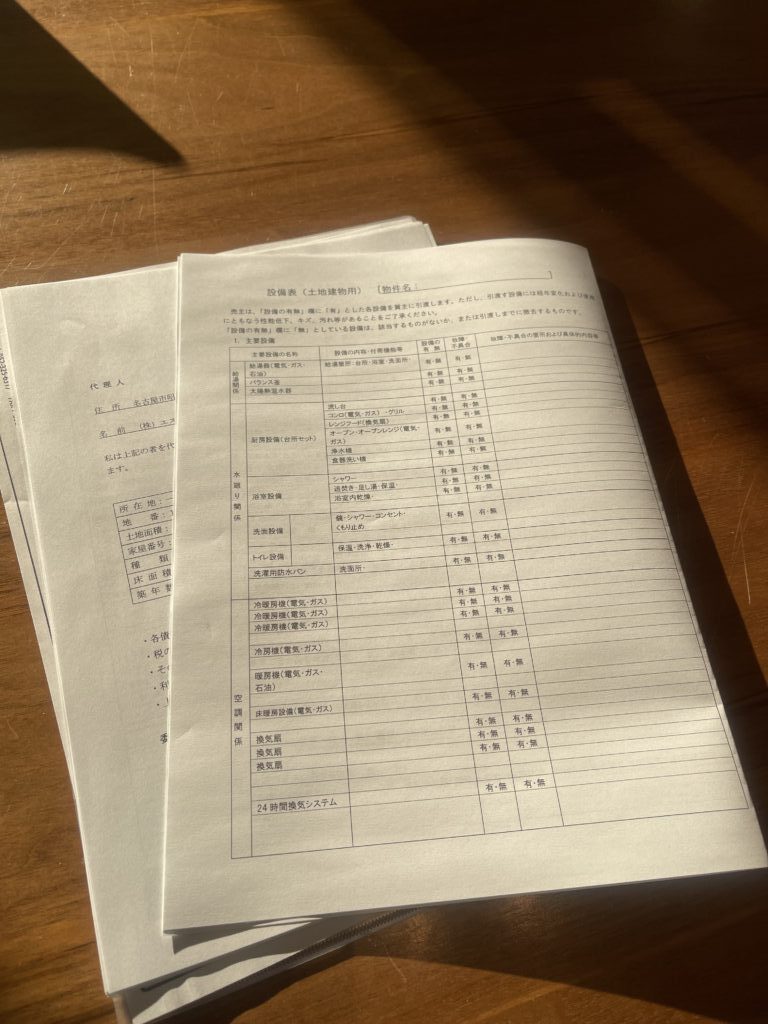 設備表（土地建物用） ［物件名： ］
売主は、「設備の有無」欄に「有」とした各設備を買主に引渡します。ただし、引渡す設備には経年変化および使用
にともなう性能低下、キズ、汚れ等があることをご了承ください。
「設備の有無」欄に「無」としている設備は、該当するものがないか、または引渡しまでに撤去するものです。
1. 主要設備
主要設備の名称 設備の内容・付帯機能等 設備の有・無 故障・不具合 故障・不具合の箇所および具体的内容等
給湯関係
給湯器（電気・ガス・石油） 給湯箇所：台所・浴室・洗面所・ 有・無 有・無
バランス釜 有・無 有・無
太陽熱温水器 有・無 有・無
水廻り関係
厨房設備（台所セット）
流し台 有・無 有・無
コンロ（電気・ガス）・グリル 有・無 有・無
レンジフード（換気扇） 有・無 有・無
オーブン・オーブンレンジ（電気・ガス） 有・無 有・無
浄水機 有・無 有・無
食器洗い機 有・無 有・無
浴室設備
シャワー 有・無 有・無
追焚き・足し湯・保温・ 有・無 有・無
浴室内乾燥・ 有・無 有・無
洗面設備 鏡・シャワー・コンセント・くもり止め 有・無 有・無
トイレ設備 保温・洗浄・乾燥・ 有・無 有・無
洗濯用防水パン 洗面所・ 有・無 有・無
空調関係
冷暖房機（電気・ガス） 有・無 有・無
冷暖房機（電気・ガス） 有・無 有・無
冷暖房機（電気・ガス） 有・無 有・無
冷房機（電気・ガス） 有・無 有・無
暖房機（電気・ガス・石油） 有・無 有・無
床暖房設備（電気・ガス） 有・無 有・無
換気扇 有・無 有・無
換気扇 有・無 有・無
換気扇 有・無 有・無
24時間換気システム 有・無 有・無
代理人
住 所 名古屋市
名 前 （株）エス
私は上記の者を代
ます。
所在地：
地 番：
土地面積：
家屋番号：
種 類
床面積
築年数
・各債
・税の
・その
・利
委